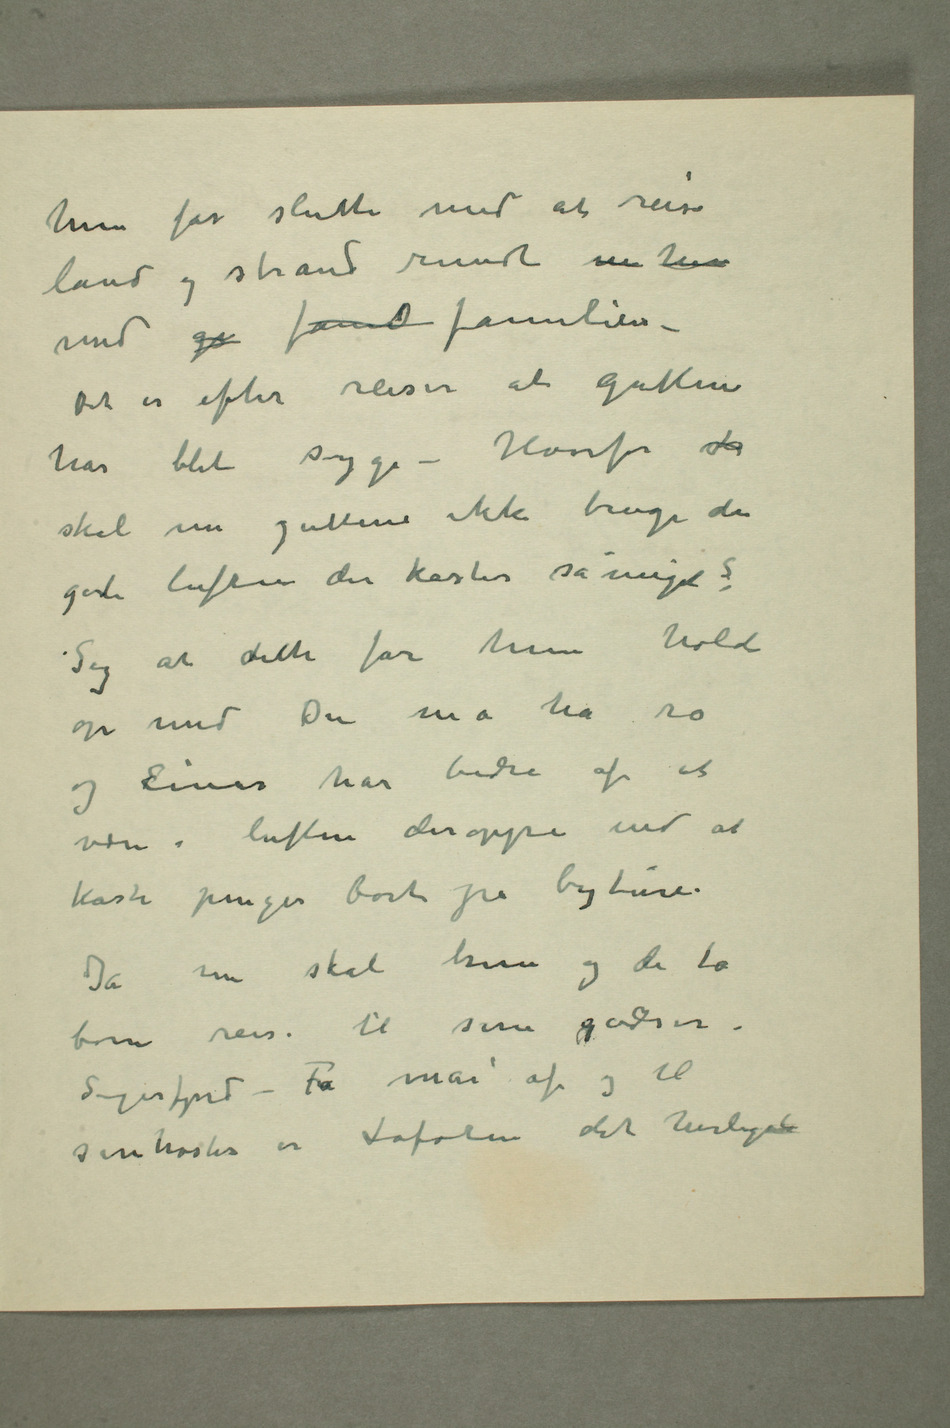 hun får slutte med at reise
land og strand rundt nu hun
med ge famil familien –
Det er efter reiser at guttene
har blet syge – Hvorfor de
skal nu guttene ikke bruge den
gode luften der koster så meget?
Sig at dette får hun holde
op med Du må ha ro
og Einar har bedre af at
være i luften deroppe end at
kaste penger bort på byture.
Ja nu skal hun og de to
børn reise til sine godser i
Sigerfjord – Fra mai af og til
senhøsten er Lofoten det herligste